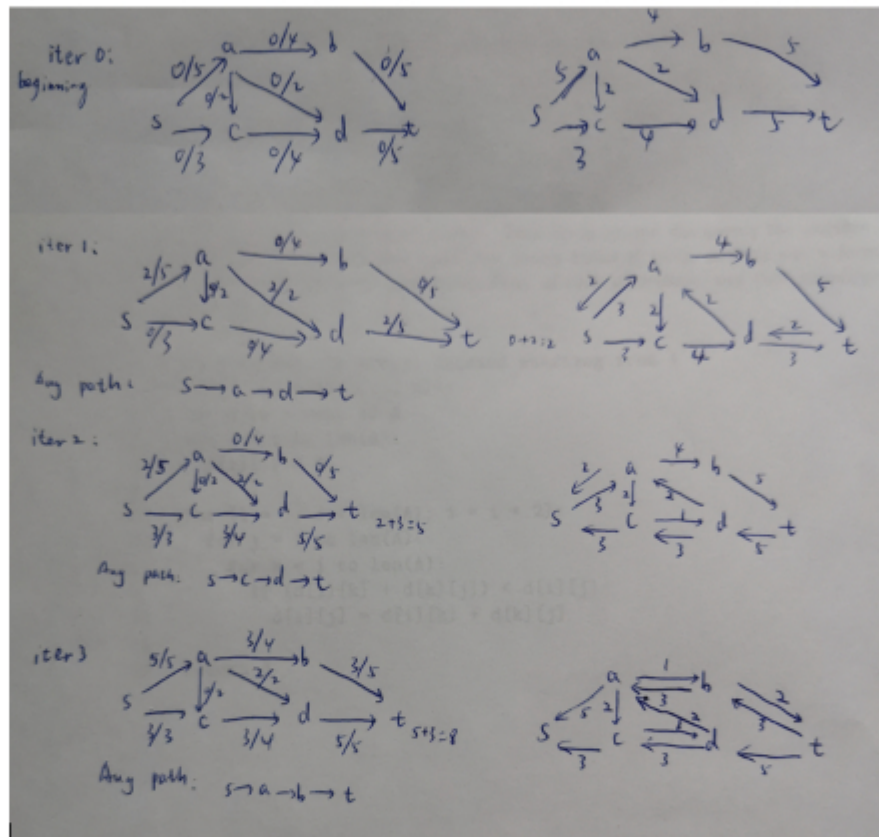 iter 0:
beginning
0/5 a 0/4 b 0/5
0/2 0/2
s 0/3 c 0/4 d 0/5 t
4
5 a b 5
2 2
s 3 c 4 d 5 t
iter 1:
2/5 a 0/4 b 0/5
0/2 2/2
s 0/3 c 0/4 d 2/5 t 0+2=2
2 3 a 4 b 5
2 2
s 3 c 4 d 2 3 t
Aug path: s→a→d→t
iter 2:
2/5 a 0/4 b 0/5
0/2 2/2
s 3/3 c 3/4 d 5/5 t 2+3=5
2 3 a 4 b 5
2 2
s 3 c 1 3 d 5 t
Aug path: s→c→d→t
iter 3
5/5 a 3/4 b 3/5
0/2 2/2
s 3/3 c 3/4 d 5/5 t 5+3=8
a 1 3 b 2 3
5 2 2
s 3 c 1 3 d 5 t
Aug path: s→a→b→t